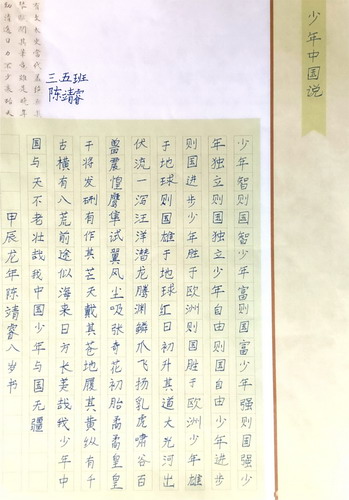 少年中国说
三.五班
陈靖睿
少年智则国智少年富则国富少年强则国强少
年独立则国独立少年自由则国自由少年进步
则国进步少年胜于欧洲则国胜于欧洲少年雄
于地球则国雄于地球红日初升其道大光河出
伏流一泻汪洋潜龙腾渊鳞爪飞扬乳虎啸谷百
兽震惶鹰隼试翼风尘吸张奇花初胎矞矞皇皇
干将发硎有作其芒天戴其苍地履其黄纵有千
古横有八荒前途似海来日方长美哉我少年中
国与天不老壮哉我中国少年与国无疆
甲辰龙年陈靖睿八岁书